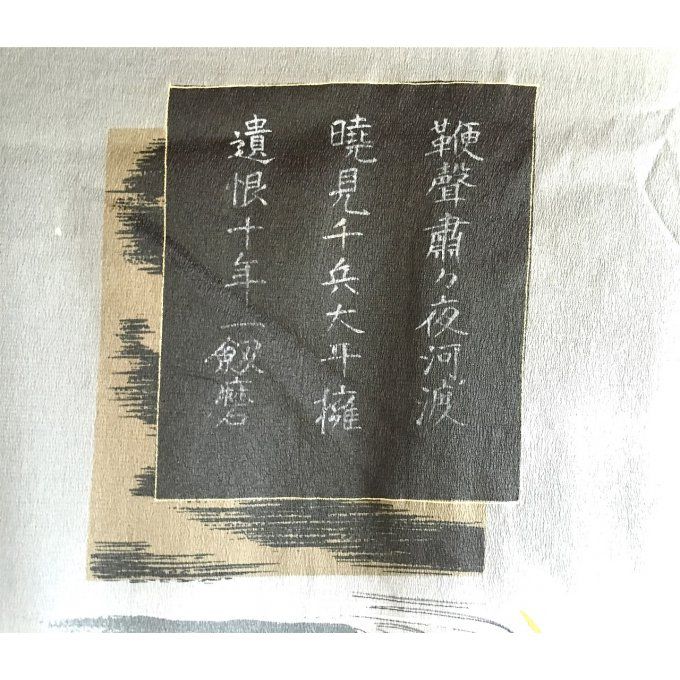 鞭聲肅々夜河渡
曉見千兵大牙擁
遺恨十年一劔磨